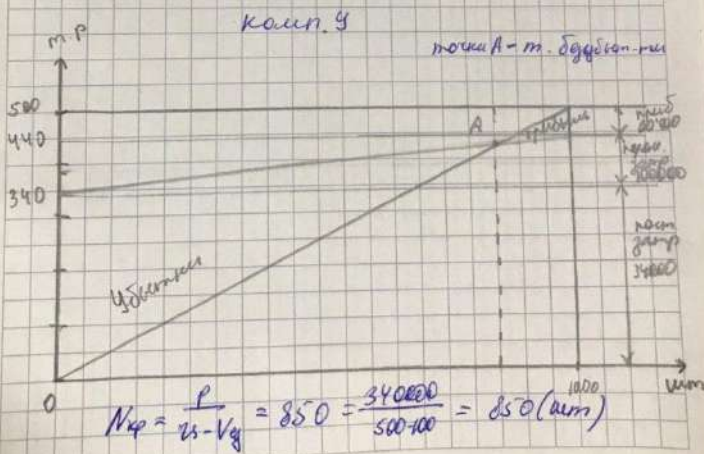 комп. У
т.р
точка А - т. безубыт-ти
500
А
прибыль
приб
60'000
440
перем.
затр
100000
340
пост
затр
34000
Убытки
0
1000
шт
Nкр = P / ц-Vу = 850 = 340000 / 500-100 = 850 (шт)